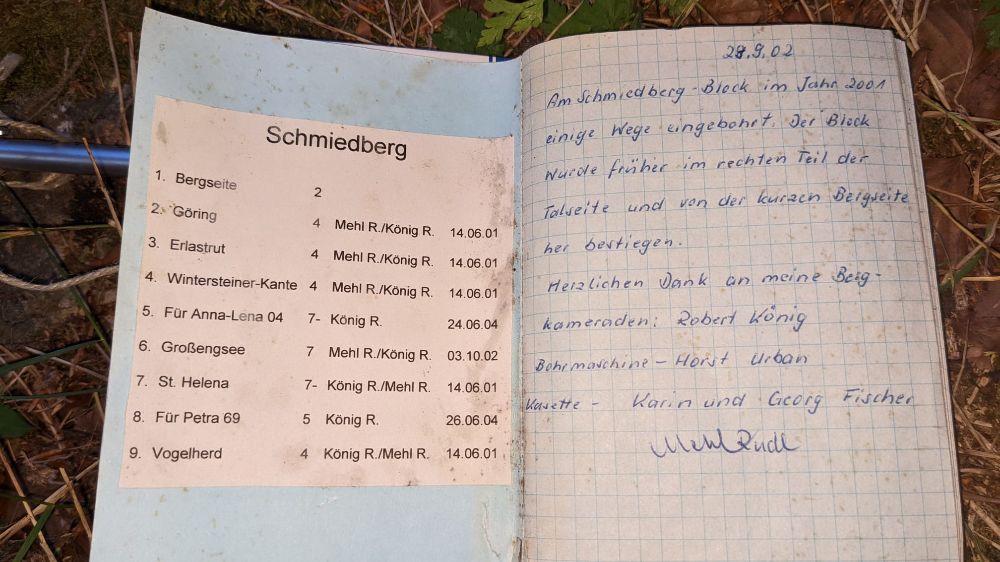 Schmiedberg
1. Bergseite 2
2. Göring 4 Mehl R./König R. 14.06.01
3. Erlastrut 4 Mehl R./König R. 14.06.01
4. Wintersteiner-Kante 4 Mehl R./König R. 14.06.01
5. Für Anna-Lena 04 7- König R. 24.06.04
6. Großengsee 7 Mehl R./König R. 03.10.02
7. St. Helena 7- König R./Mehl R. 14.06.01
8. Für Petra 69 5 König R. 26.06.04
9. Vogelherd 4 König R./Mehl R. 14.06.01
28.9.02
Am Schmiedberg-Block im Jahr 2001
einige Wege eingebohrt. Der Block
wurde früher im rechten Teil der
Talseite und von der kurzen Bergseite
her bestiegen.
Herzlichen Dank an meine Berg-
kameraden: Robert König
Bohrmaschine - Horst Urban
Kasette - Karin und Georg Fischer
Mehl Rudl